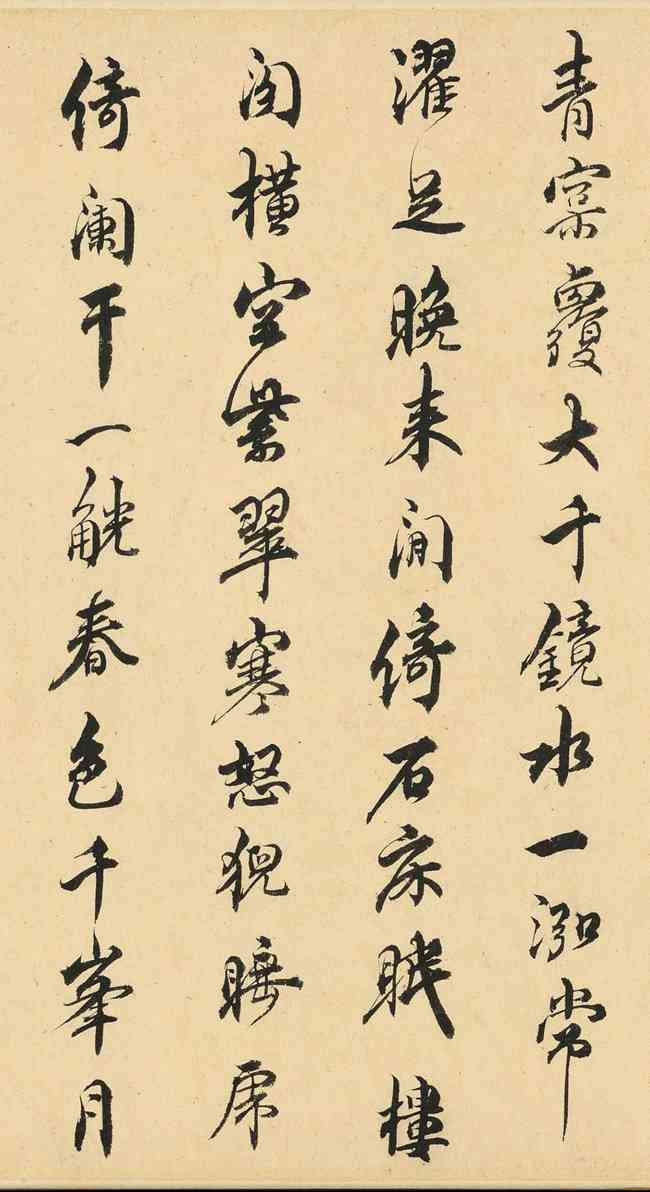 青冥覆大千鏡水一泓常
濯足晚來閒倚石床眠樓
閣橫空紫翠寒怒猊睡虎
倚闌干一觥春色千峯月